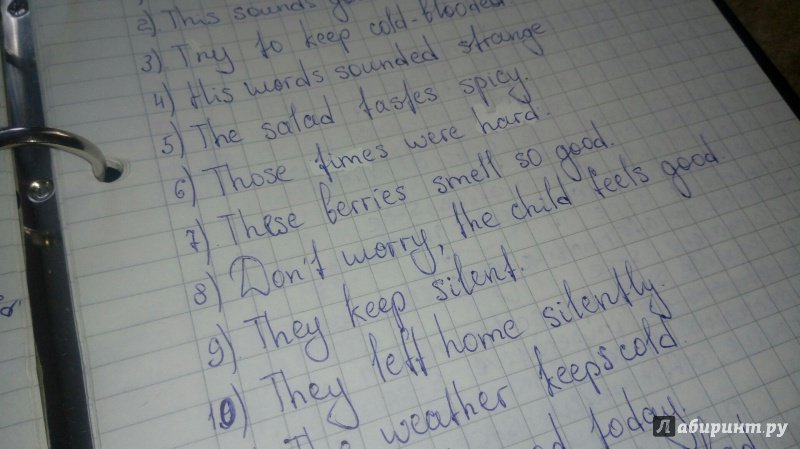 2) This sounds
3) Try to keep cold-blooded
4) His words sounded strange
5) The salad tastes spicy.
6) Those times were hard.
7) These berries smell so good.
8) Don't worry, the child feels good
9) They keep silent.
10) They left home silently.
The weather keeps cold.
today.
Лабиринт.ру